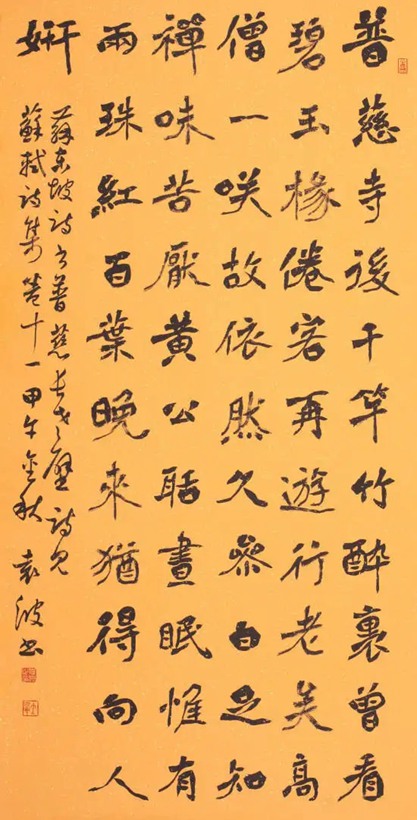 普慈寺後千竿竹醉裏曾看
碧玉椽倦客再遊行老矣高
僧一咲故依然久參白足知
禪味苦厭黃公聒晝眠惟有
兩珠紅百葉晚來猶得向人
妍
蘇東坡詩書普慈長老壁詩見
蘇軾詩集卷十一甲午金秋 袁波書